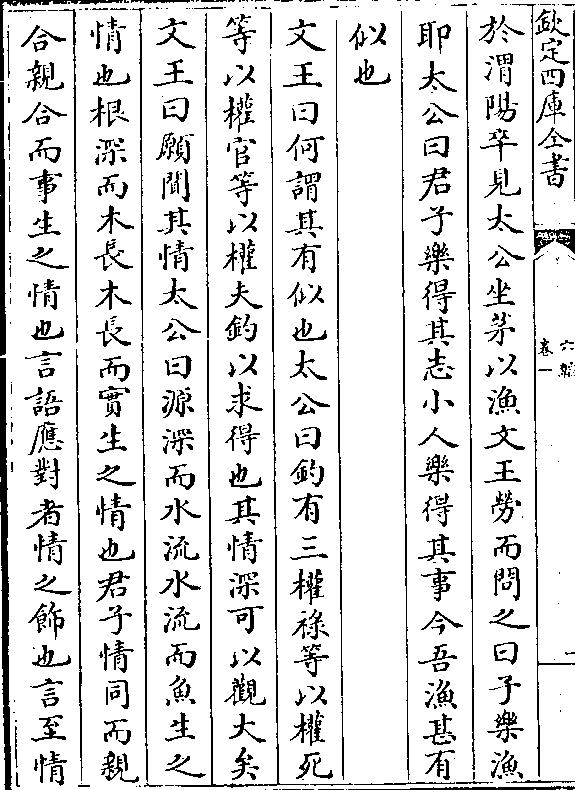 欽定四庫全書
六韜
卷一
一
於渭陽卒見太公坐茅以漁文王勞而問之曰子樂漁
耶太公曰君子樂得其志小人樂得其事今吾漁甚有
似也
文王曰何謂其有似也太公曰釣有三權祿等以權死
等以權官等以權夫釣以求得也其情深可以觀大矣
文王曰願聞其情太公曰源深而水流水流而魚生之
情也根深而木長木長而實生之情也君子情同而親
合親合而事生之情也言語應對者情之飾也言至情